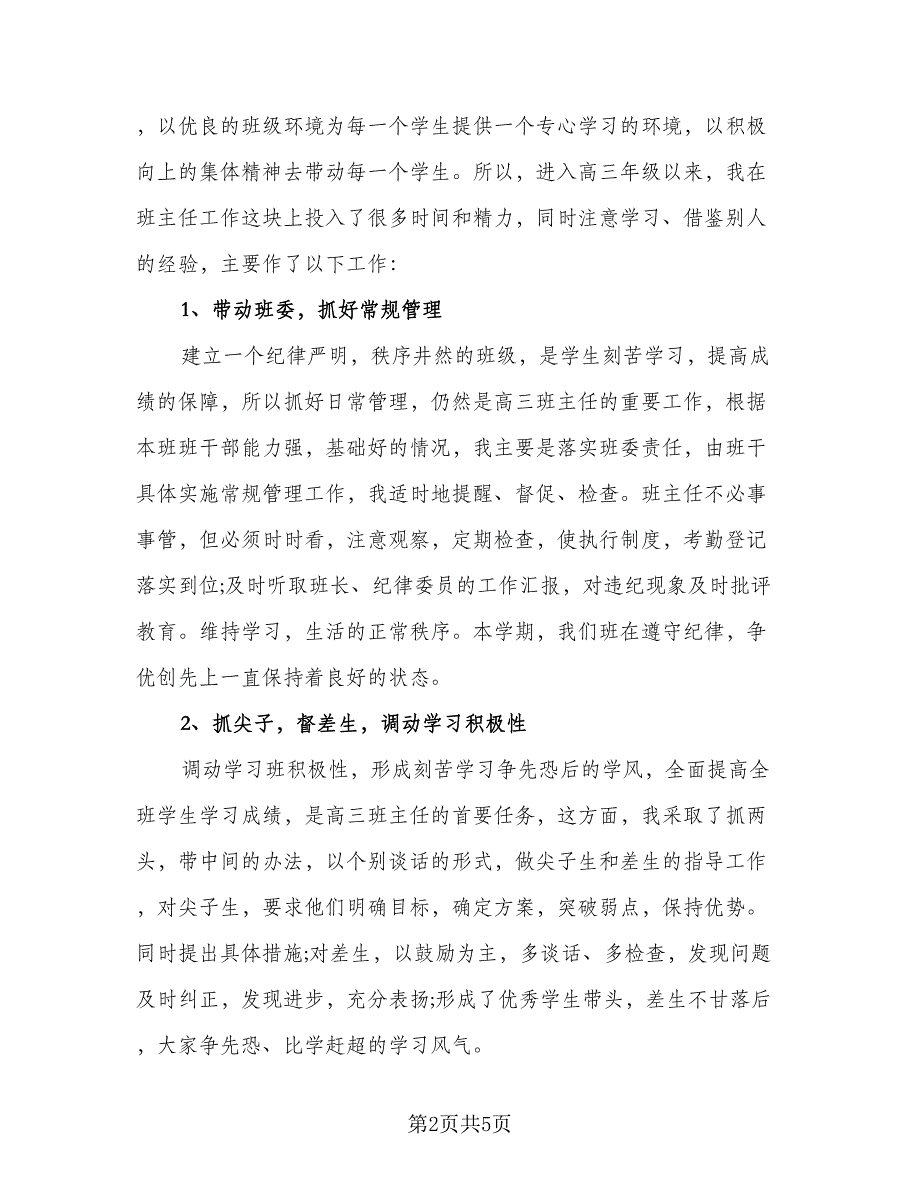 ，以优良的班级环境为每一个学生提供一个专心学习的环境，以积极
向上的集体精神去带动每一个学生。所以，进入高三年级以来，我在
班主任工作这块上投入了很多时间和精力，同时注意学习、借鉴别人
的经验，主要作了以下工作：
1、带动班委，抓好常规管理
建立一个纪律严明，秩序井然的班级，是学生刻苦学习，提高成
绩的保障，所以抓好日常管理，仍然是高三班主任的重要工作，根据
本班班干部能力强，基础好的情况，我主要是落实班委责任，由班干
具体实施常规管理工作，我适时地提醒、督促、检查。班主任不必事
事管，但必须时时看，注意观察，定期检查，使执行制度，考勤登记
落实到位;及时听取班长、纪律委员的工作汇报，对违纪现象及时批评
教育。维持学习，生活的正常秩序。本学期，我们班在遵守纪律，争
优创先上一直保持着良好的状态。
2、抓尖子，督差生，调动学习积极性
调动学习班积极性，形成刻苦学习争先恐后的学风，全面提高全
班学生学习成绩，是高三班主任的首要任务，这方面，我采取了抓两
头，带中间的办法，以个别谈话的形式，做尖子生和差生的指导工作
，对尖子生，要求他们明确目标，确定方案，突破弱点，保持优势。
同时提出具体措施;对差生，以鼓励为主，多谈话、多检查，发现问题
及时纠正，发现进步，充分表扬;形成了优秀学生带头，差生不甘落后
，大家争先恐、比学赶超的学习风气。
第2页共5页